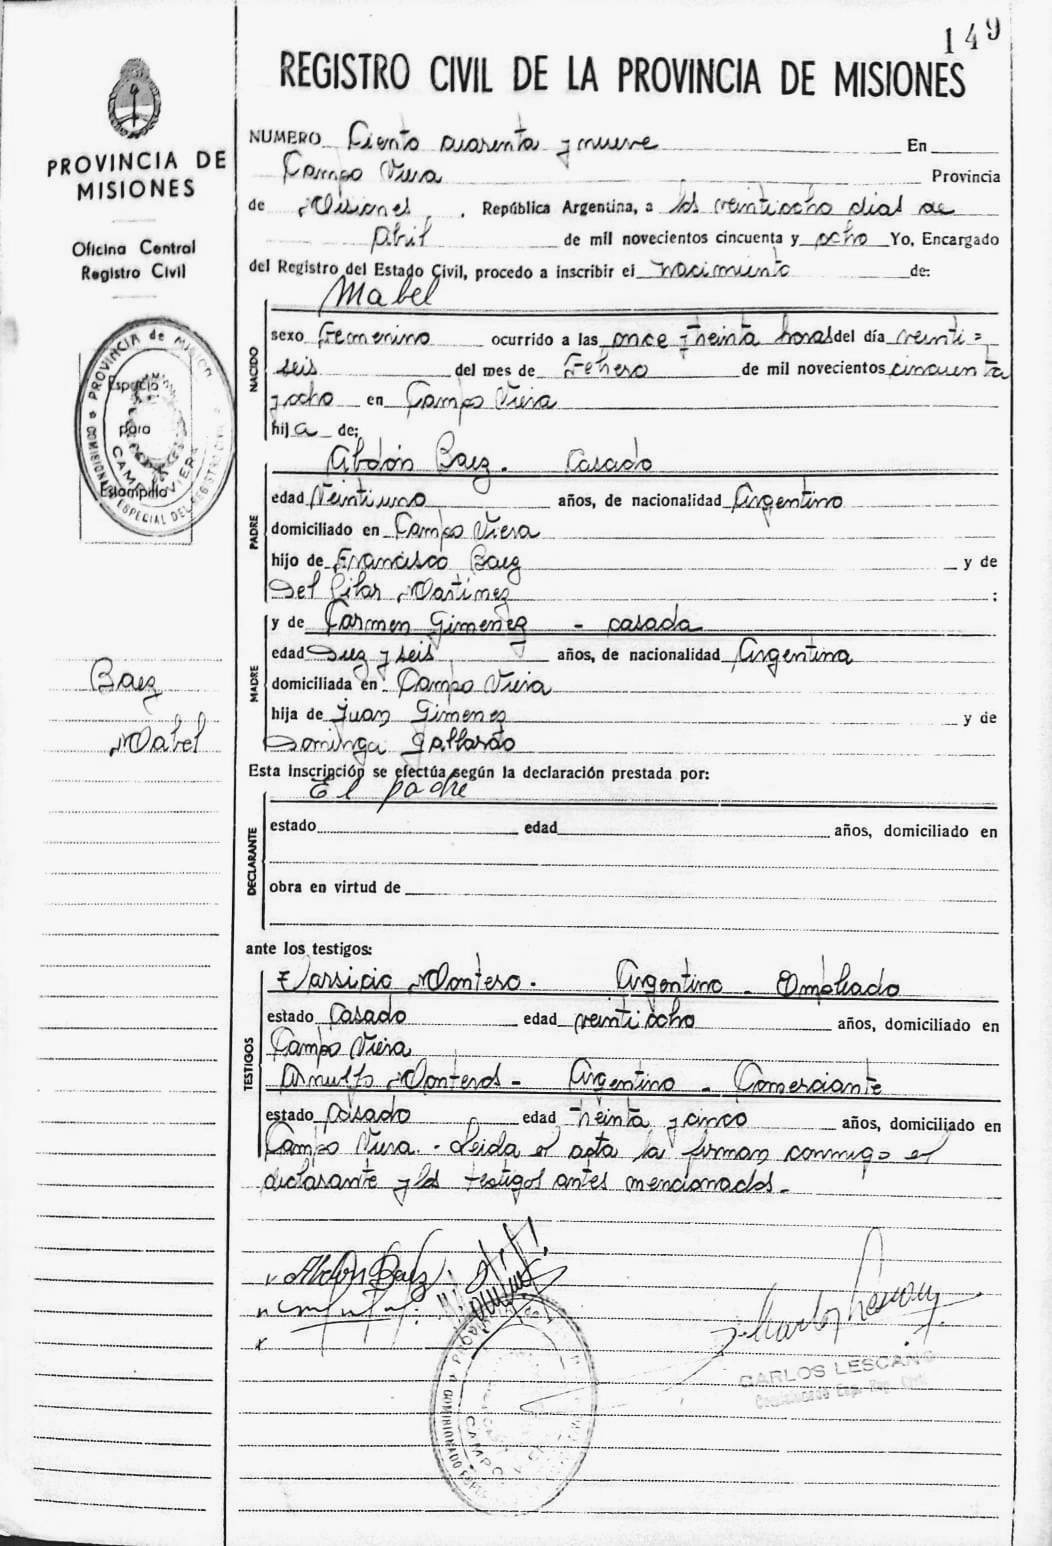 149
REGISTRO CIVIL DE LA PROVINCIA DE MISIONES
PROVINCIA DE
MISIONES
Oficina Central
Registro Civil
PROVINCIA de MISIONES
COMISIONADO ESPECIAL DEL REGISTRO CIVIL
CAMPO VIERA
Espacio
para
Estampilla
Baez
Mabel
NUMERO Ciento cuarenta y nueve En
Campo Viera Provincia
de Misiones, República Argentina, a los veintiocho dias de
Abril de mil novecientos cincuenta y ocho Yo, Encargado
del Registro del Estado Civil, procedo a inscribir el nacimiento de:
Mabel
NACIDO
sexo Femenino ocurrido a las once treinta horas del día veinti=
seis del mes de Febrero de mil novecientos cincuenta
y ocho en Campo Viera
hija de:
PADRE
Abdón Baez. Casado
edad Veintiuno años, de nacionalidad Argentino
domiciliado en Campo Viera
hijo de Francisco Baez y de
Del Pilar Martinez :
MADRE
y de Carmen Gimenez - casada
edad Diez y seis años, de nacionalidad Argentina
domiciliada en Campo Viera
hija de Juan Gimenez y de
Dominga Gallardo
Esta inscripción se efectúa según la declaración prestada por:
El padre
DECLARANTE
estado edad años, domiciliado en
obra en virtud de
ante los testigos:
TESTIGOS
Montero. Argentino - Empleado
estado Casado edad veintiocho años, domiciliado en
Campo Viera
Arnulfo Monteros - Argentino - Comerciante
estado Casado edad treinta y cinco años, domiciliado en
Campo Viera. - Leida el acta la firman conmigo el
declarante y los testigos antes mencionados. -
Abdon Baez
CARLOS LESCANO